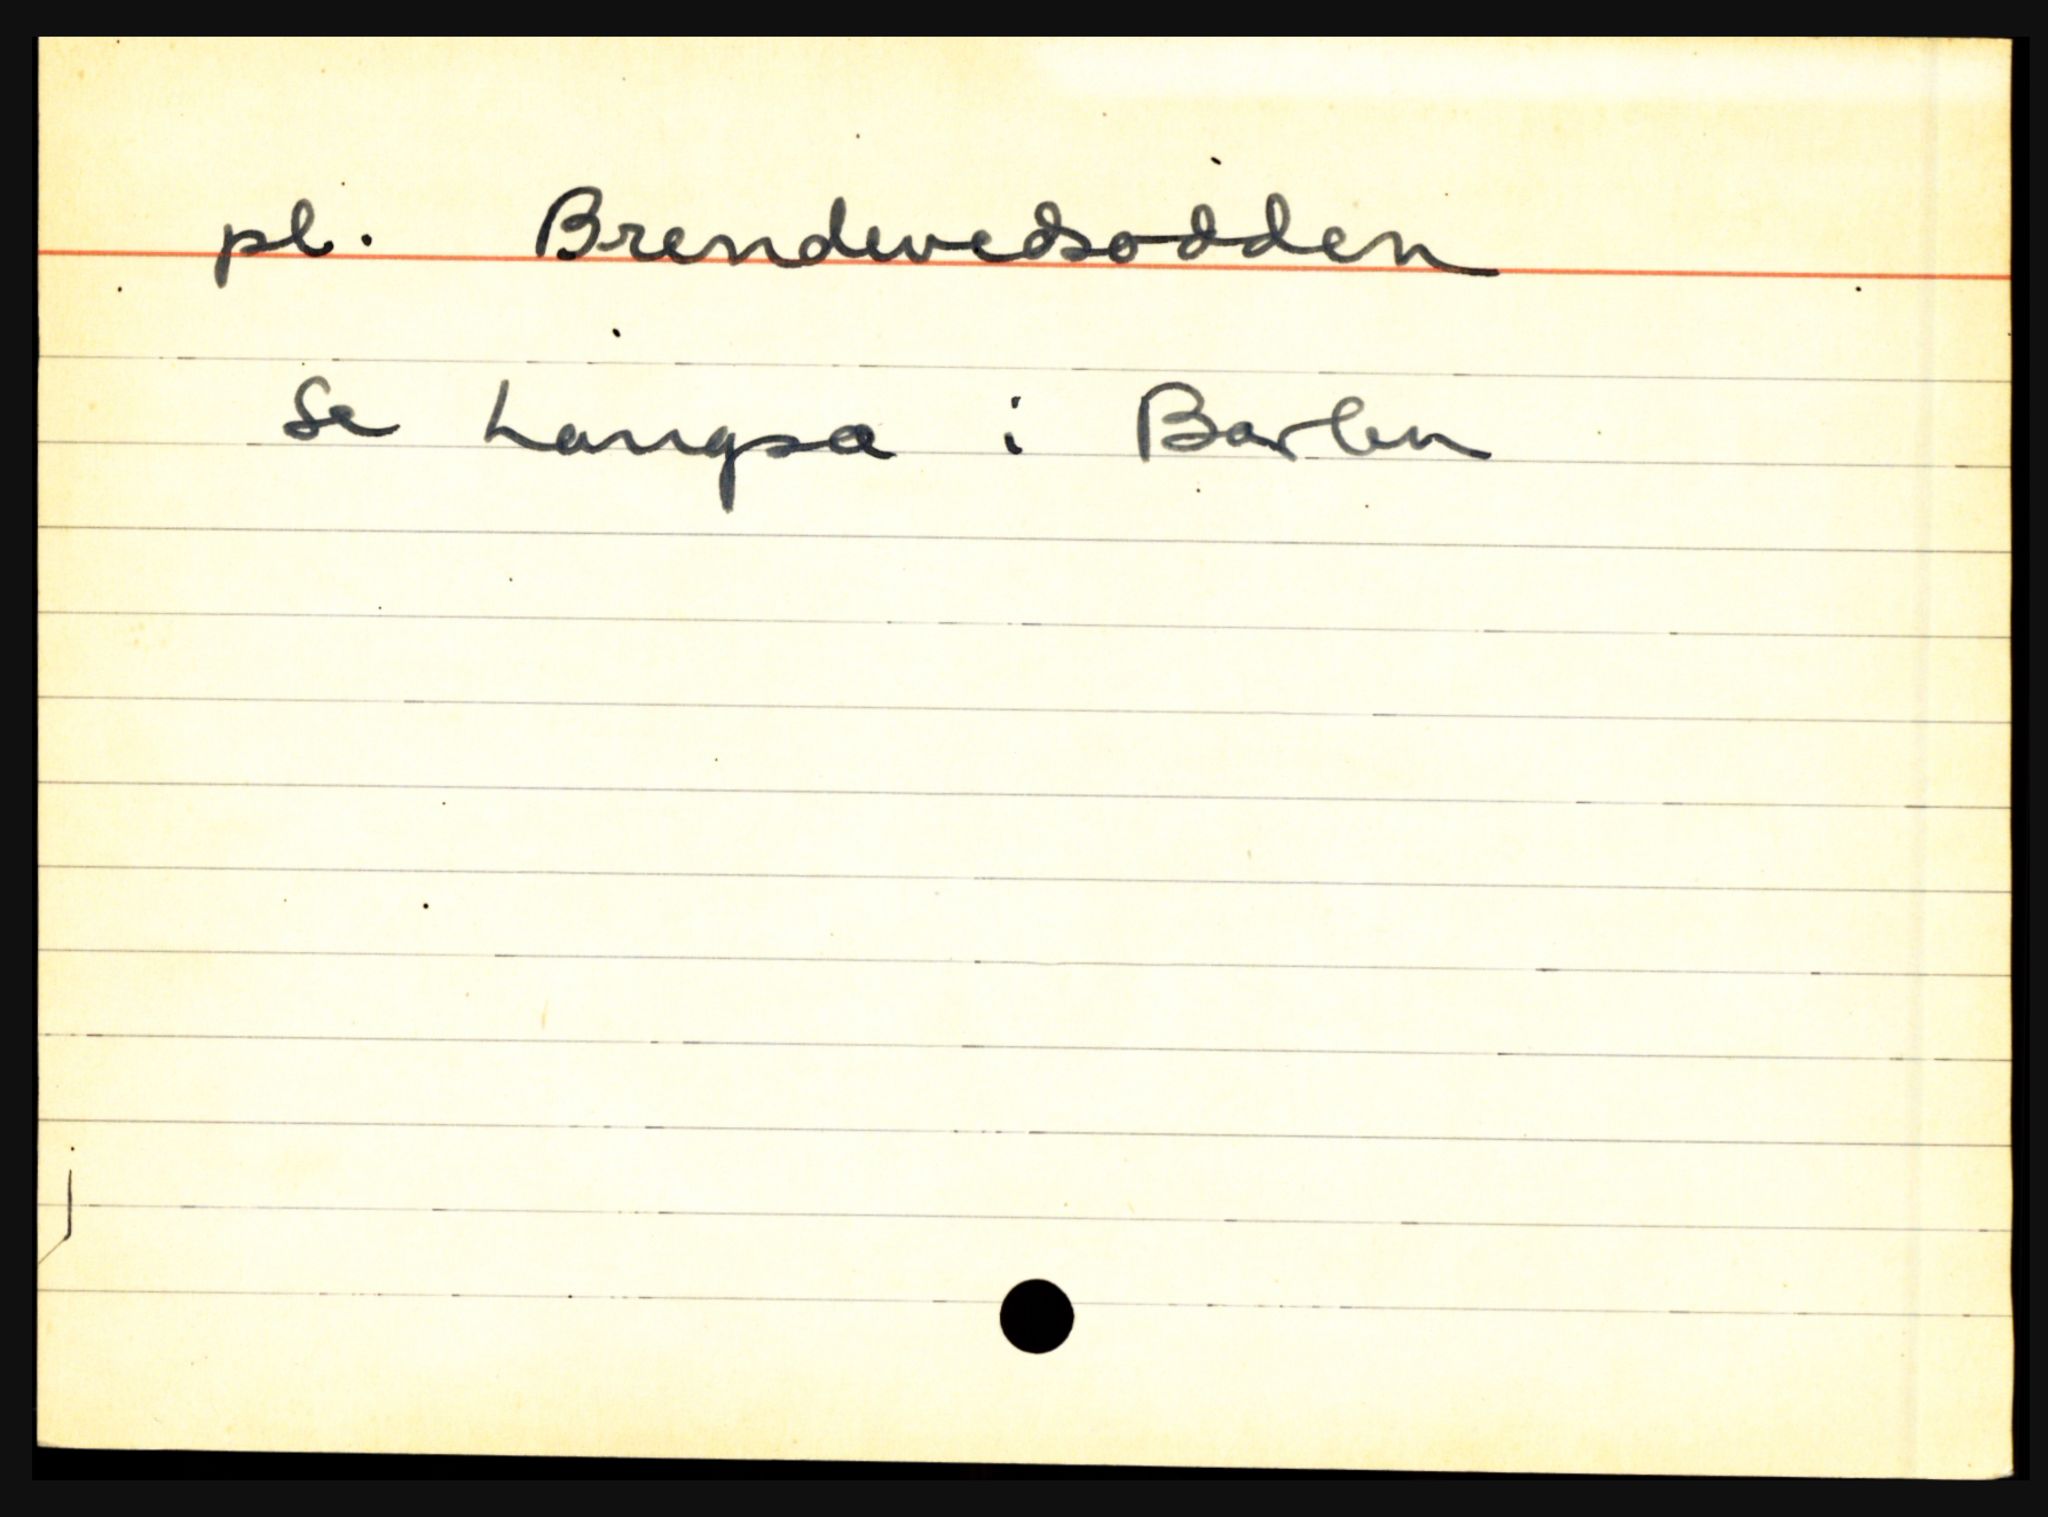 pl. Brendevedsodden
Se Langsæ i Barbu